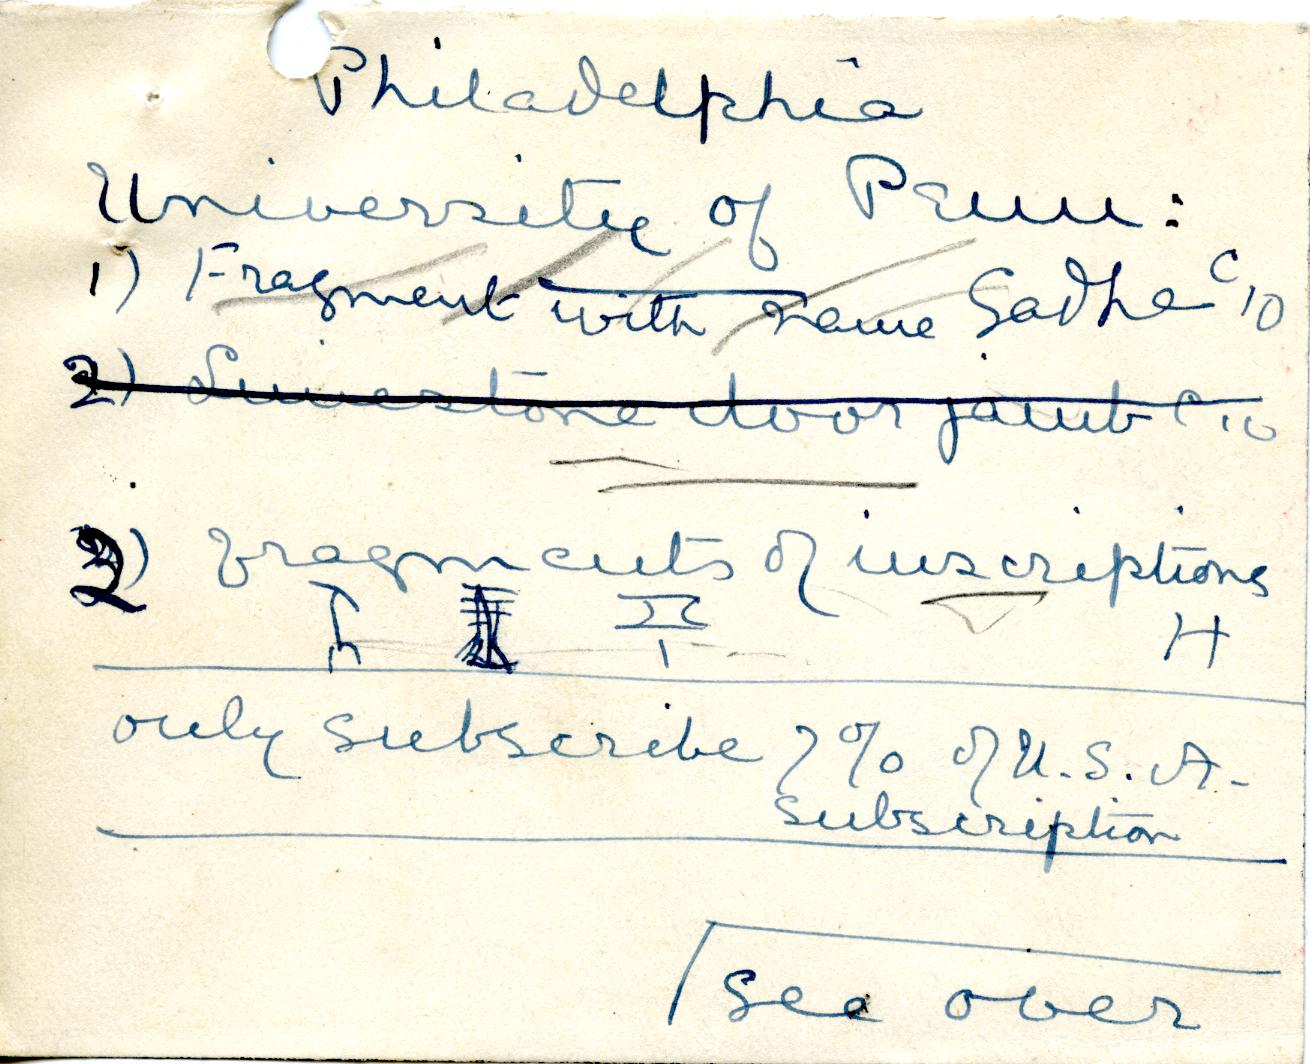 Philadelphia
University of Penn:
1) Fragment with name Sadhe C 10
2) Limestone door jamb C 10
2) fragments of inscriptions
H
only subscribe 7% of U.S.A.
subscription
see over